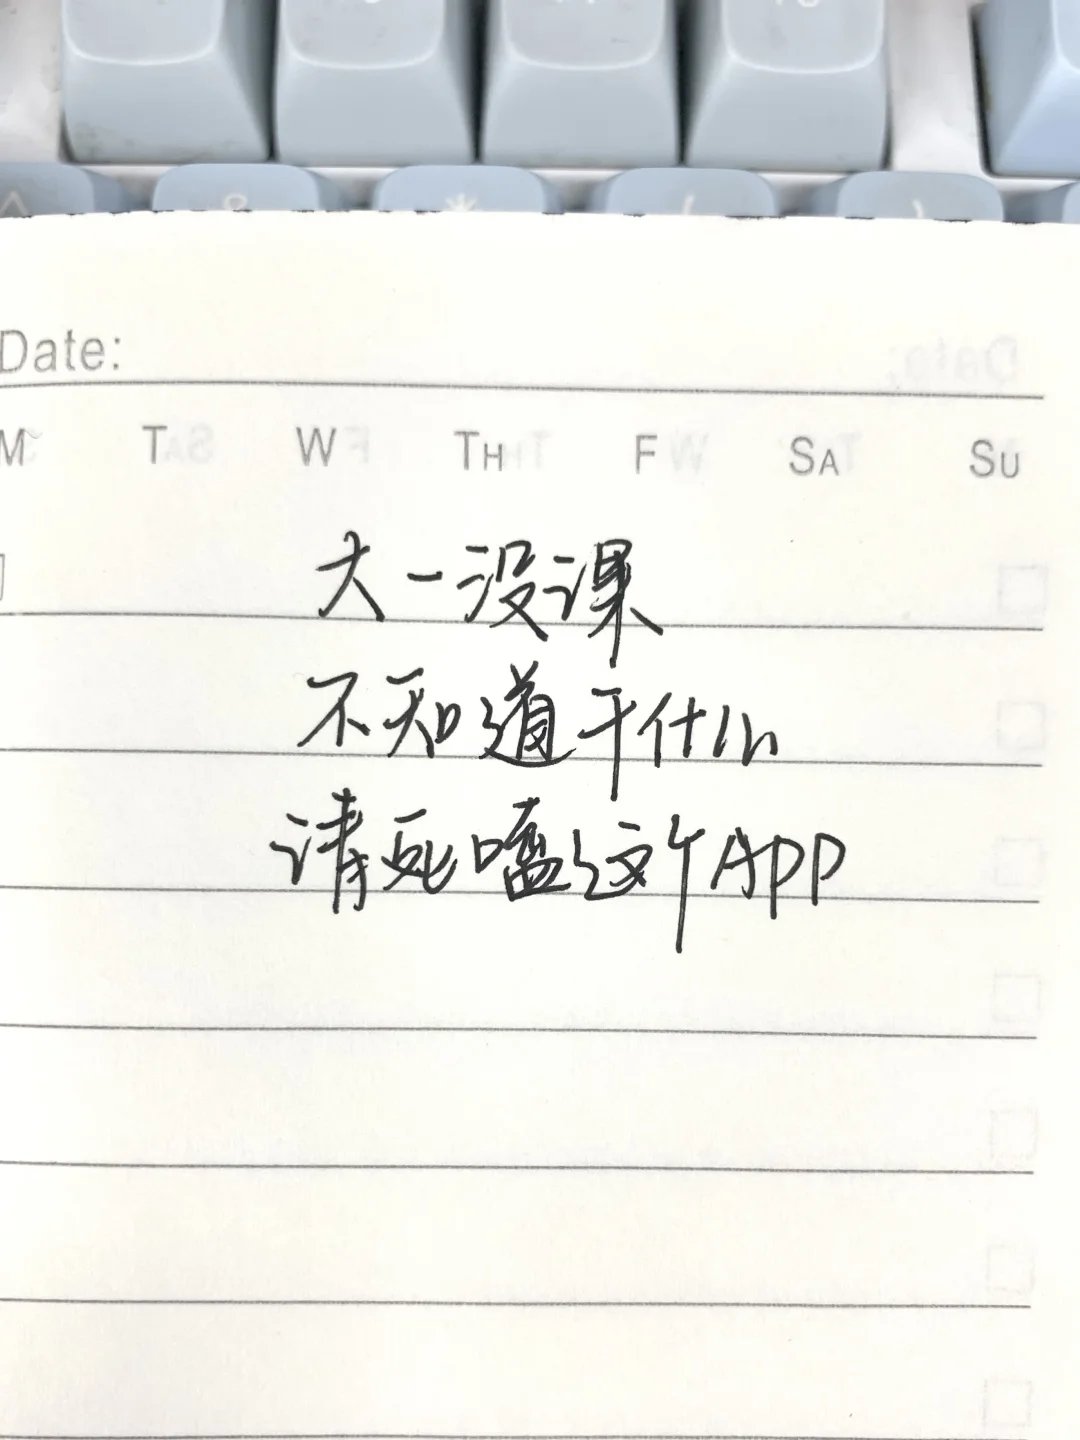 Date:
M T W TH F SA SU
大一没课
不知道干什么
请死嗑这个APP